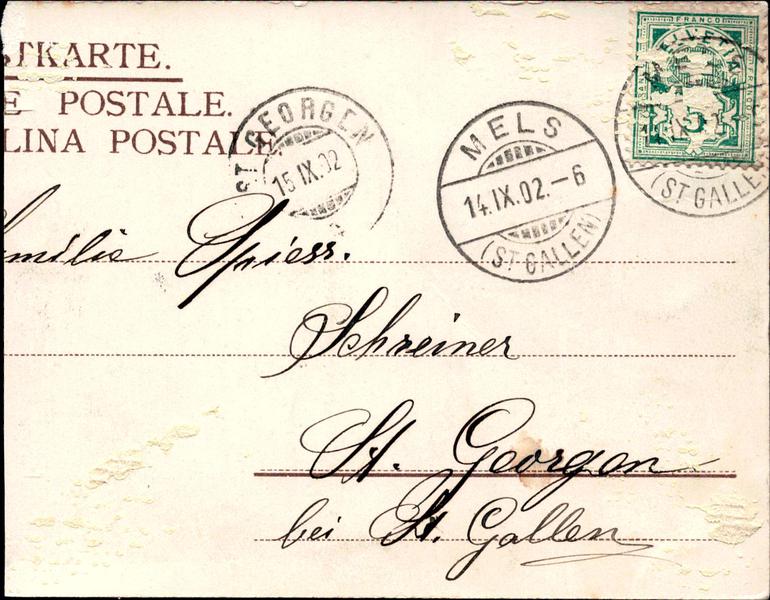 STKARTE.
E POSTALE.
LINA POSTALE
ST. GEORGEN
15 IX.02
MELS
14.IX.02.–6
(ST GALLEN)
FRANCO
HELVETIA
(ST GALLE
Familie Spiess.
Schreiner
St. Georgen
bei St. Gallen